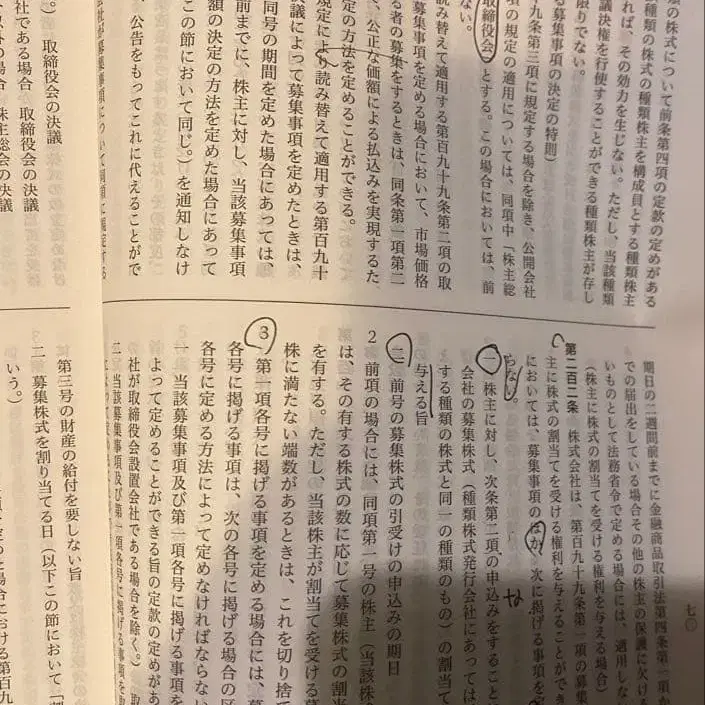 類の株式について前条第四項の定款の定めがある
種類の株式の種類株主を構成員とする種類株主
れば、その効力を生じない。ただし、当該種類
議決権を行使することができる種類株主が存し
限りでない。
募集事項の決定の特則)
九条第三項に規定する場合を除き、公開会社
項の規定の適用については、同項中「株主総
取締役会」とする。この場合においては、前
ない。
読み替えて適用する第百九十九条第二項の取
募集事項を定める場合において、市場価格
る者の募集をするときは、同条第一項第二
、公正な価額による払込みを実現するた
定の方法を定めることができる。
規定により読み替えて適用する第百九十
議によって募集事項を定めたときは、
同号の期間を定めた場合にあっては、
前までに、株主に対し、当該募集事項
額の決定の方法を定めた場合にあって
この節において同じ。)を通知しなけ
、公告をもってこれに代えることがで
取締役会の決議
社である場合 取締役会の決議
株主総会の決議
七〇
期日の二週間前までに金融商品取引法第四条第一項か
での届出をしている場合その他の株主の保護に欠ける
いものとして法務省令で定める場合には、適用しない
(株主に株式の割当てを受ける権利を与える場合)
第二百二条 株式会社は、第百九十九条第一項の募集
主に株式の割当てを受ける権利を与えることができ
においては、募集事項のほか、次に掲げる事項を
らない。
一 株主に対し、次条第二項の申込みをすること
会社の募集株式(種類株式発行会社にあっては
する種類の株式と同一の種類のもの)の割当て
与える旨
二 前号の募集株式の引受けの申込みの期日
2 前項の場合には、同項第一号の株主(当該株
は、その有する株式の数に応じて募集株式の割当
を有する。ただし、当該株主が割当てを受ける募
株に満たない端数があるときは、これを切り捨て
3 第一項各号に掲げる事項を定める場合には、募
各号に掲げる事項は、次の各号に掲げる場合の区
各号に定める方法によって定めなければならない
一 当該募集事項及び第一項各号に掲げる事項を
よって定めることができる旨の定款の定めがあ
社が取締役会設置会社である場合を除く。)
二 当該募集事項及び第一項各号に掲げる事項を
第三号の財産の給付を要しない旨
二 募集株式を割り当てる日(以下この節において「
いう。)